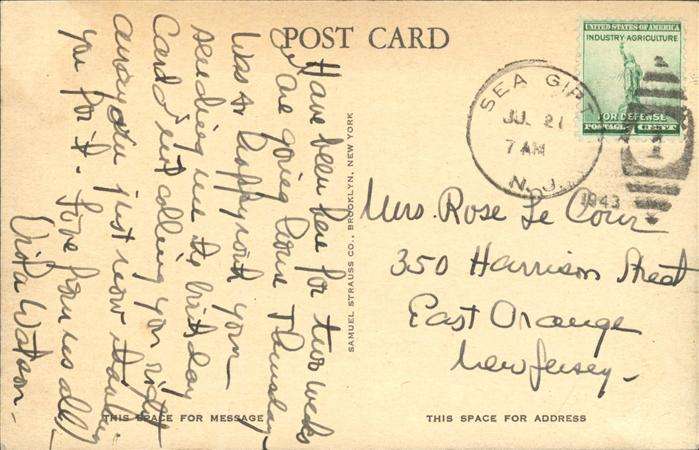 POST CARD
UNITED STATES OF AMERICA
INDUSTRY·AGRICULTURE
FOR DEFENSE
POSTAGE 1 CENT
SEA GIR
JUL 21
7 AM
N.J.
1943
1
Have been here for two weeks
& are going home Thursday
Was so happy with your
sending me the birthday
Card not calling you right
away you just know
you for it - Love from us all
Watson -
SAMUEL STRAUSS CO., BROOKLYN, NEW YORK
Mrs. Rose Le Cour
350 Harrison Street
East Orange
New Jersey -
THIS SPACE FOR MESSAGE
THIS SPACE FOR ADDRESS